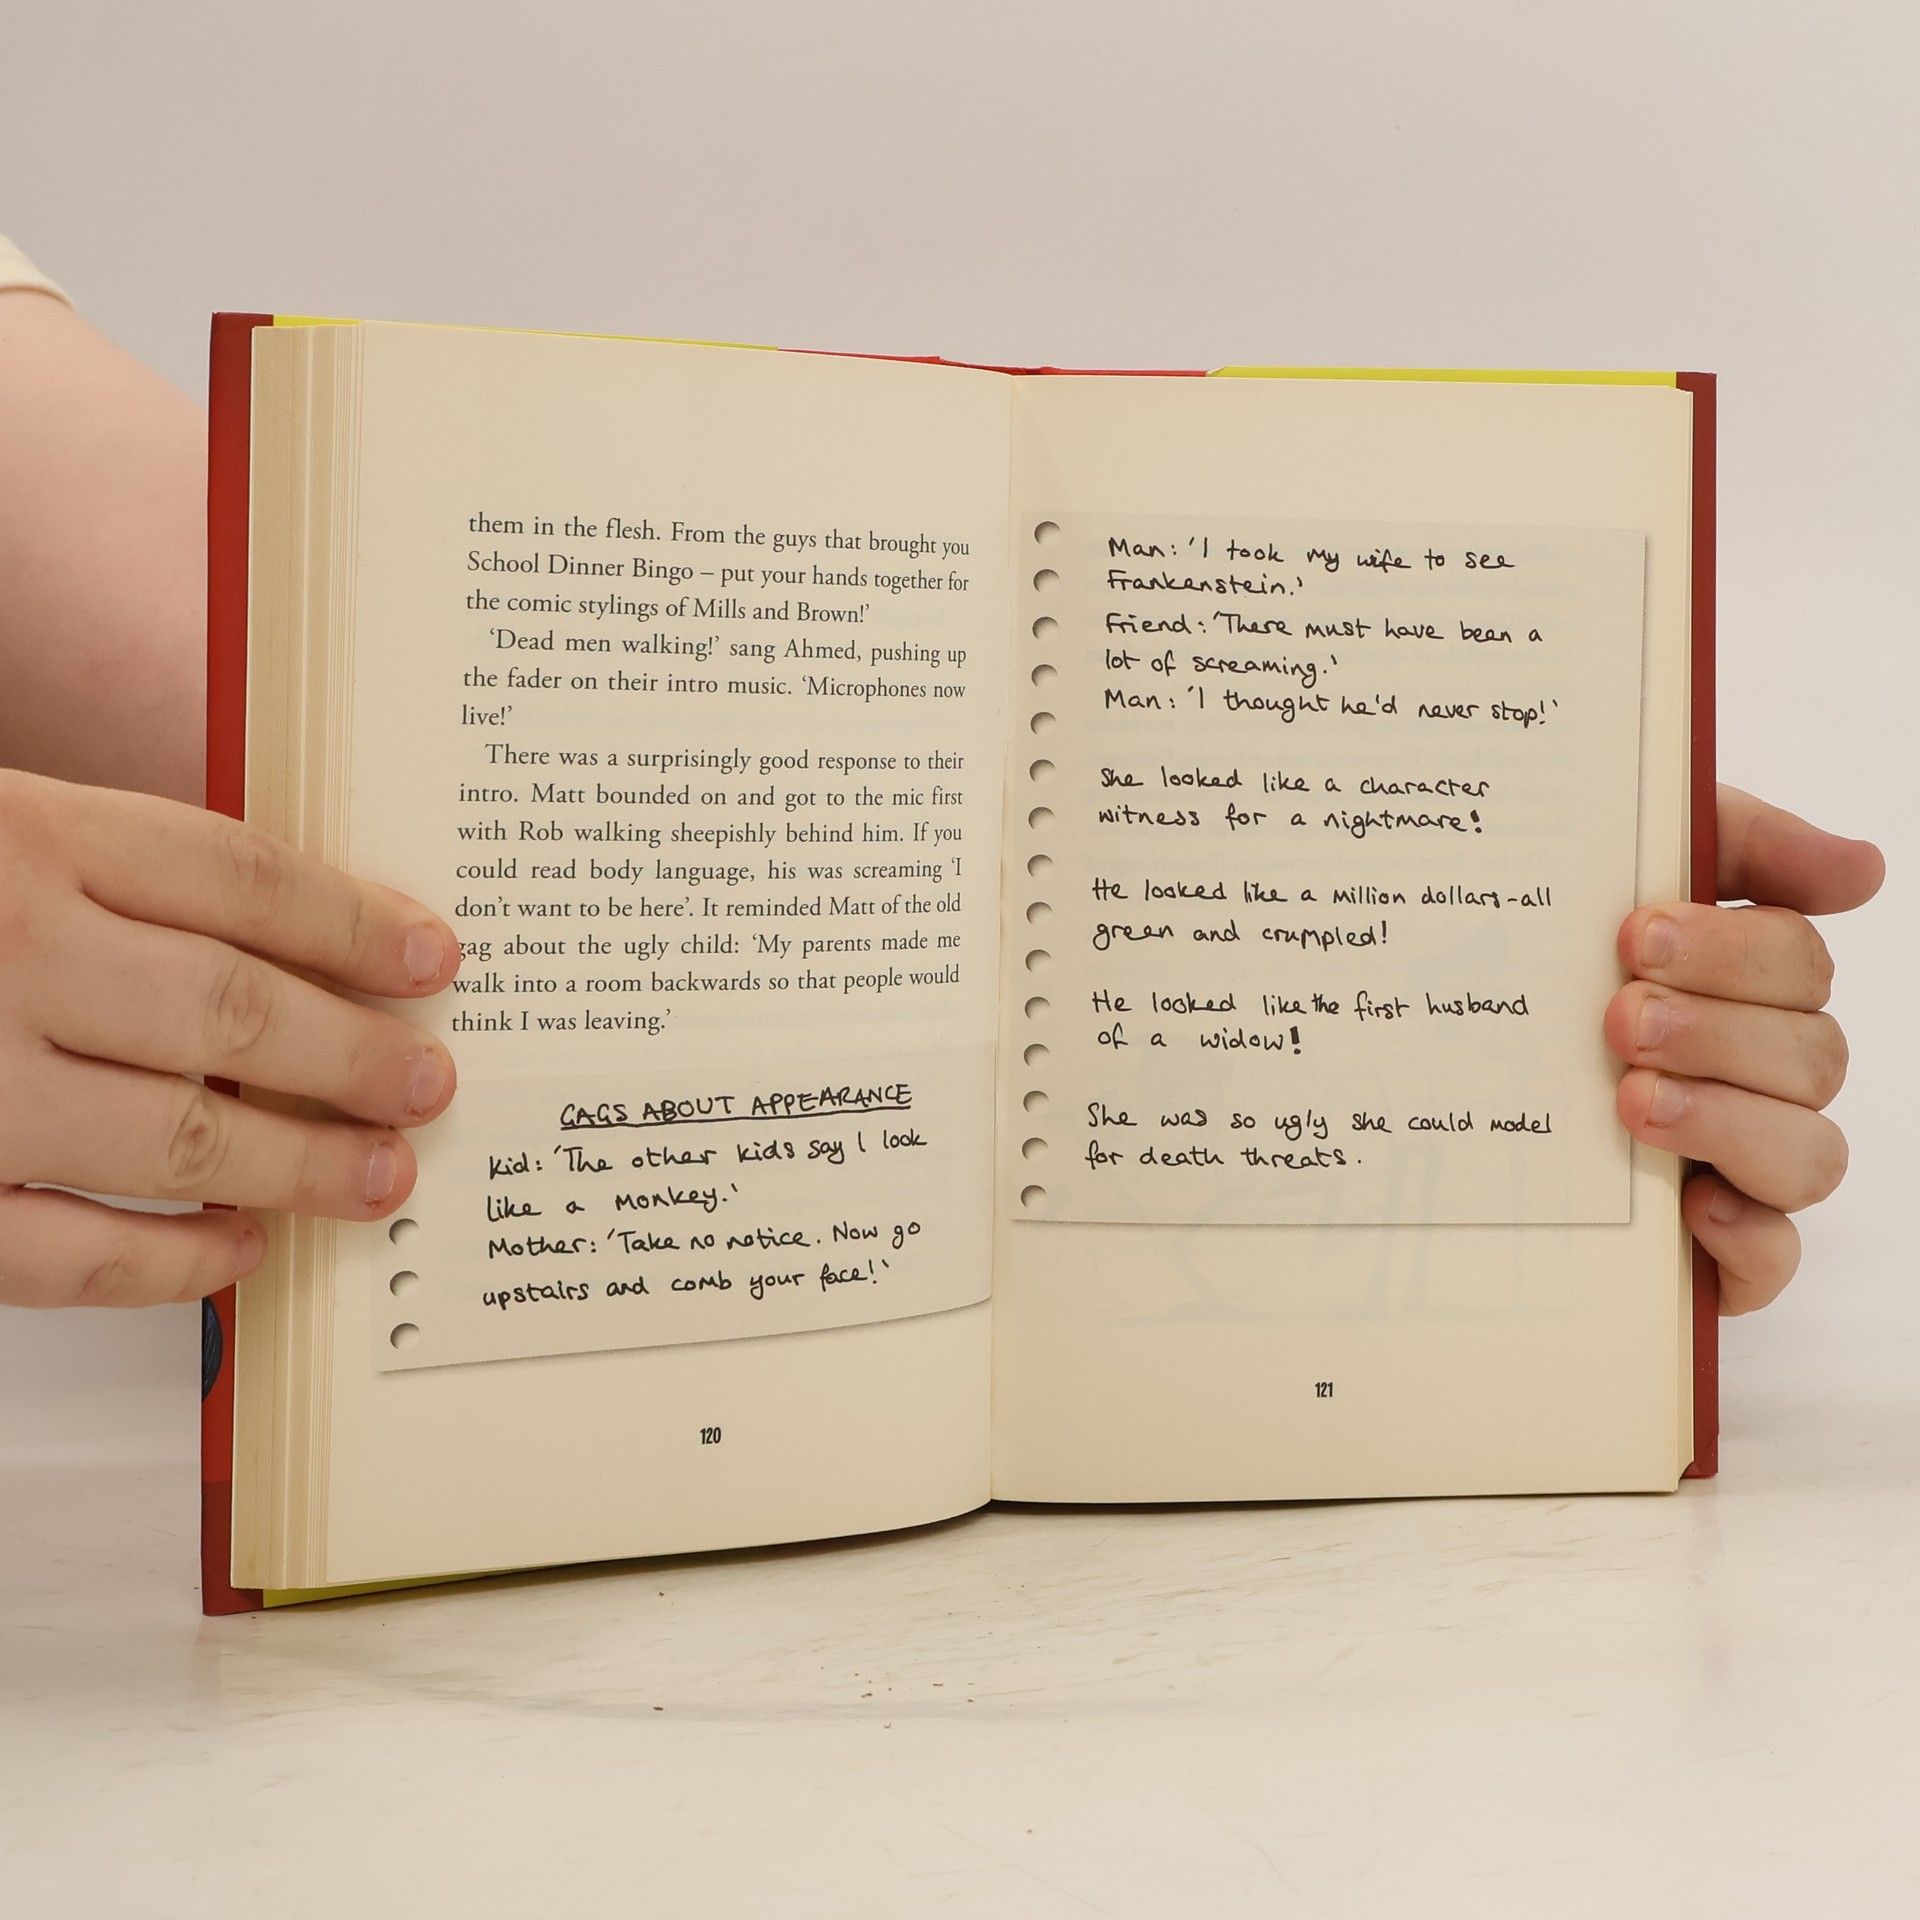 them in the flesh. From the guys that brought you
School Dinner Bingo – put your hands together for
the comic stylings of Mills and Brown!’
‘Dead men walking!’ sang Ahmed, pushing up
the fader on their intro music. ‘Microphones now
live!’
There was a surprisingly good response to their
intro. Matt bounded on and got to the mic first
with Rob walking sheepishly behind him. If you
could read body language, his was screaming ‘I
don’t want to be here’. It reminded Matt of the old
gag about the ugly child: ‘My parents made me
walk into a room backwards so that people would
think I was leaving.’
GAGS ABOUT APPEARANCE
Kid: 'The other kids say I look
like a monkey.'
Mother: 'Take no notice. Now go
upstairs and comb your face!'
120
Man: 'I took my wife to see
Frankenstein.'
Friend: 'There must have been a
lot of screaming.'
Man: 'I thought he'd never stop!'
She looked like a character
witness for a nightmare!
He looked like a million dollars-all
green and crumpled!
He looked like the first husband
of a widow!
She was so ugly she could model
for death threats.
121